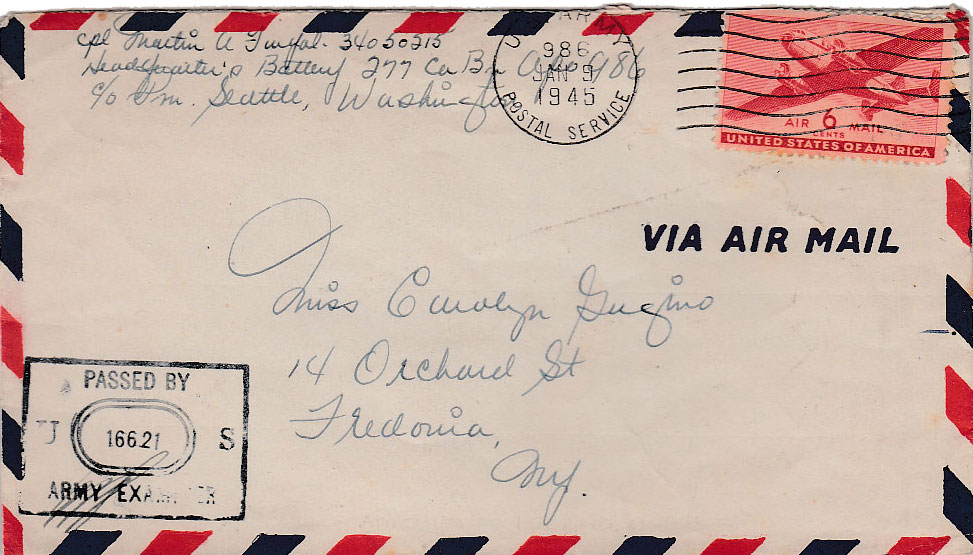 Cpl Martin A 34050215
Headquarter's Battery 277 Ca Bn APO 986
c/o Pm. Seattle, Washington
U.S. ARMY
986
JAN 9
1945
POSTAL SERVICE
AIR 6 MAIL
CENTS
UNITED STATES OF AMERICA
VIA AIR MAIL
Miss Carolyn Gugino
14 Orchard St
Fredonia,
Ny.
PASSED BY
U 16621 S
ARMY EXAMINER